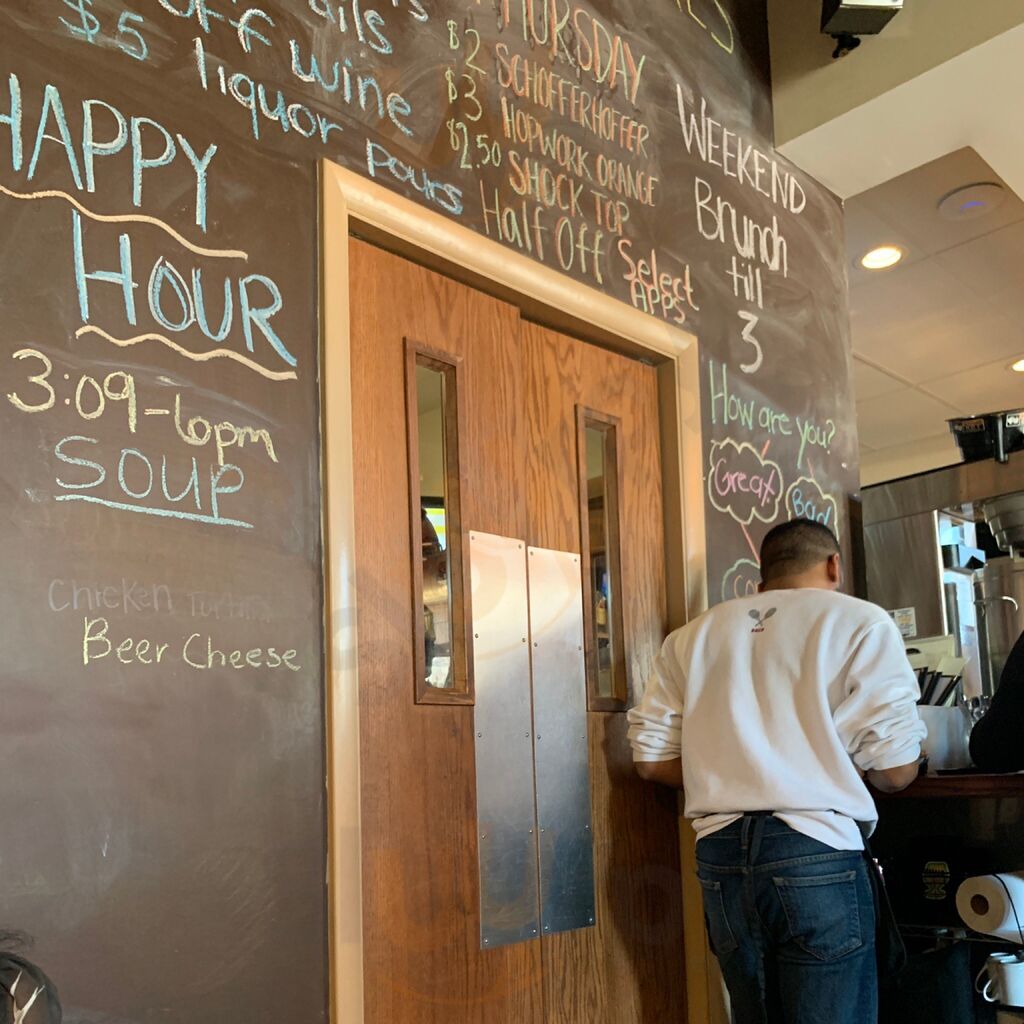 $5
off wine
liquor
pours
HAPPY
HOUR
3:09-6pm
SOUP
Chicken
Beer Cheese
THURSDAY
$2 SCHOFFERHOFFER
$3 HOPWORK ORANGE
$2.50 SHOCK TOP
Half Off Select
APPS
WEEKEND
Brunch
till
3
How are you?
Great
Bad